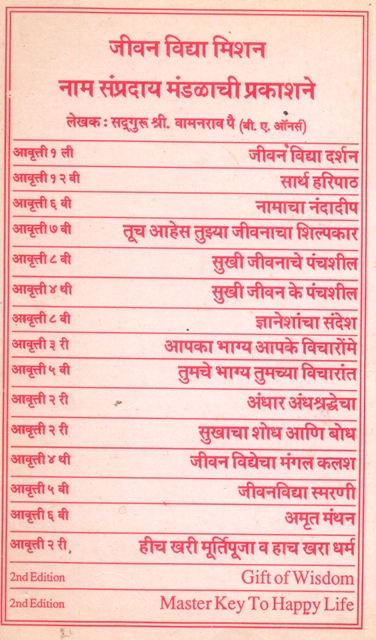 जीवन विद्या मिशन
नाम संप्रदाय मंडळाची प्रकाशने
लेखक : सद्‌गुरू श्री. वामनराव पै (बी. ए. ऑनर्स)
आवृत्ती १ ली जीवन विद्या दर्शन
आवृत्ती १२ वी सार्थ हरिपाठ
आवृत्ती ६ वी नामाचा नंदादीप
आवृत्ती ७ वी तूच आहेस तुझ्या जीवनाचा शिल्पकार
आवृत्ती ८ वी सुखी जीवनाचे पंचशील
आवृत्ती ४ थी सुखी जीवन के पंचशील
आवृत्ती ८ वी ज्ञानेशांचा संदेश
आवृत्ती ३ री आपका भाग्य आपके विचारोंमे
आवृत्ती ५ वी तुमचे भाग्य तुमच्या विचारांत
आवृत्ती २ री अंधार अंधश्रद्धेचा
आवृत्ती २ री सुखाचा शोध आणि बोध
आवृत्ती ४ थी जीवन विद्येचा मंगल कलश
आवृत्ती ५ वी जीवनविद्या स्मरणी
आवृत्ती ६ वी अमृत मंथन
आवृत्ती २ री. हीच खरी मूर्तिपूजा व हाच खरा धर्म
2nd Edition Gift of Wisdom
2nd Edition Master Key To Happy Life